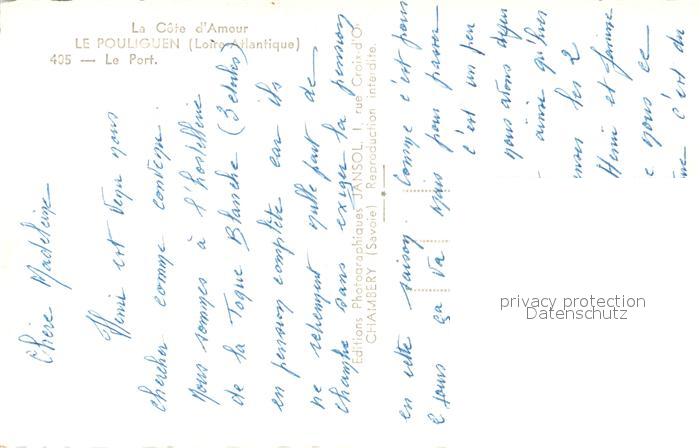 La Côte d'Amour
LE POULIGUEN (Loire-Atlantique)
405 — Le Port.
Chère Madeleine
Henri est venu nous
chercher comme convenu.
Nous sommes à l'hostellerie
de la Toque Blanche (3 étoiles)
en pension complète car ils
ne retiennent nulle part de
chambre sans exiger la pension
Editions Photographiques JANSOL, 1, rue Croix-d'Or
CHAMBERY (Savoie) Reproduction interdite.
en cette saison. Comme c'est pour
2 jours ça va mais pour passer
c'est un peu
nous avons
ainsi qu'hier
les 2
Henri et
nous ce
c'est du
privacy protection
Datenschutz